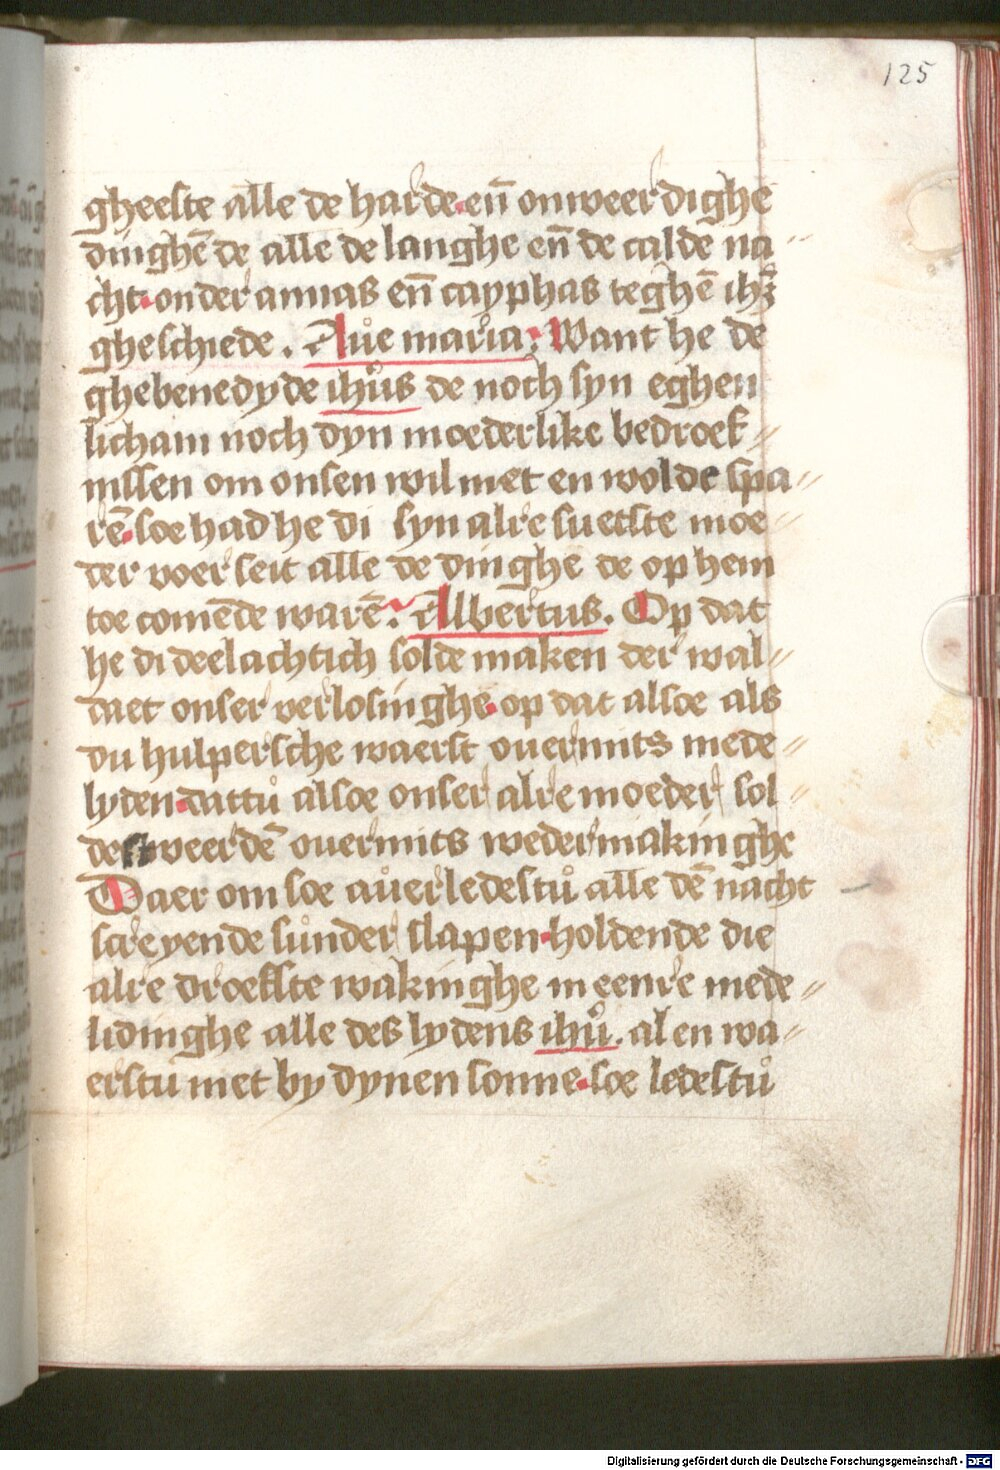 125
gheeste alle de harde. en̄ onweerdighe
dinghē de alle de langhe en̄ de calde na〃
cht. onder annas en̄ cayphas teghē ihʒ̄
gheschiede. Aůe maria: Want he de
ghebenedyde ihůs de noch syn eghen
licham noch dyn moederlike bedroef〃
nissen om onsen wil niet en wolde spa〃
rē. soe had he di syn alre suetste moe〃
der voer seit alle de dinghe de op hem
toe comēde warē. Albertus. Op dat
he di deelachtich solde maken der wal〃
daet onser verlosinghe. op dat alsoe als
du hulpersche waerst ouermits mede〃
lyden. dattů alsoe onser alre moeder sol〃
dest weerdē ouermits wedermakinghe
Daer om soe aůerledestů alle dē nacht
screyende sůnder slapen. holdende die
alre droefste wakinghe in eenre mede〃
lidinghe alle des lydens ihů. al en wa〃
erstu niet by dynen sonne. soe ledestů
Digitalisierung gefördert durch die Deutsche Forschungsgemeinschaft - DFG